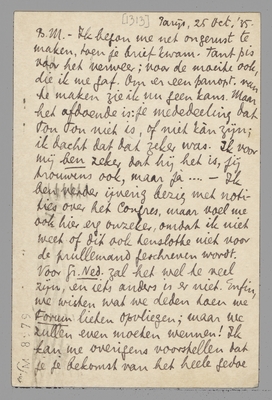 [1313] Parijs, 25 Oct. '35.
B.M. - Ik begon me net ongerust te
maken, toen je brief kwam. Tant pis
voor het verweer; voor de moeite ook,
die ik me gaf. Om er een panopt. van
te maken zie ik nu geen kans. Maar
het afdoende is: je mededeeling dat
Ton Ton niet is, of niet kàn zijn;
ik dacht dat dat zeker was. Ik voor
mij ben zeker dat hij het is, jij
trouwens ook, maar ja .... - Ik
ben verder ijverig bezig met noti-
ties over het Congres, maar voel me
ook hier erg onzeker, omdat ik niet
weet of dit ook tenslotte niet voor
de prullemand geschreven wordt.
Voor Gr. Ned. zal het wel te veel
zijn, en iets anders is er niet. Enfin,
we wisten wat we deden toen we
Forum lieten opvliegen; maar we
zullen even moeten wennen! Ik
kan me overigens voorstellen dat
je je bekomst van het heele gedoe
M 8475